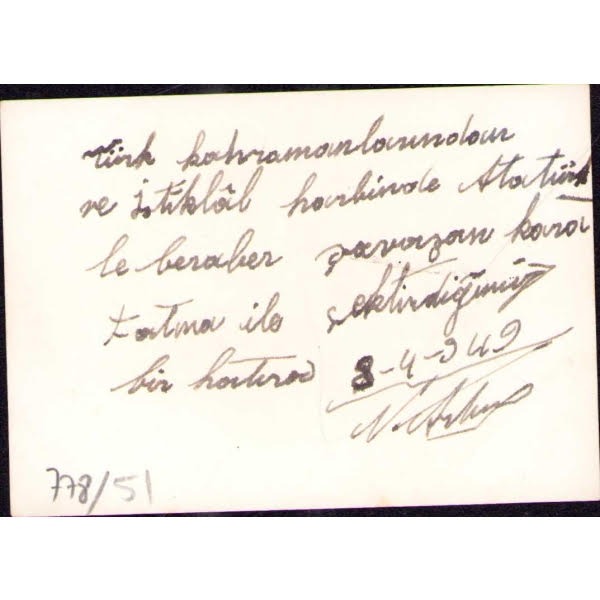 Türk kahramanlarından
ve İstiklâl harbinde Atatürk
le beraber savaşan kara
Fatma ile çektirdiğimiz
bir hatıra 8-4-949
778/51